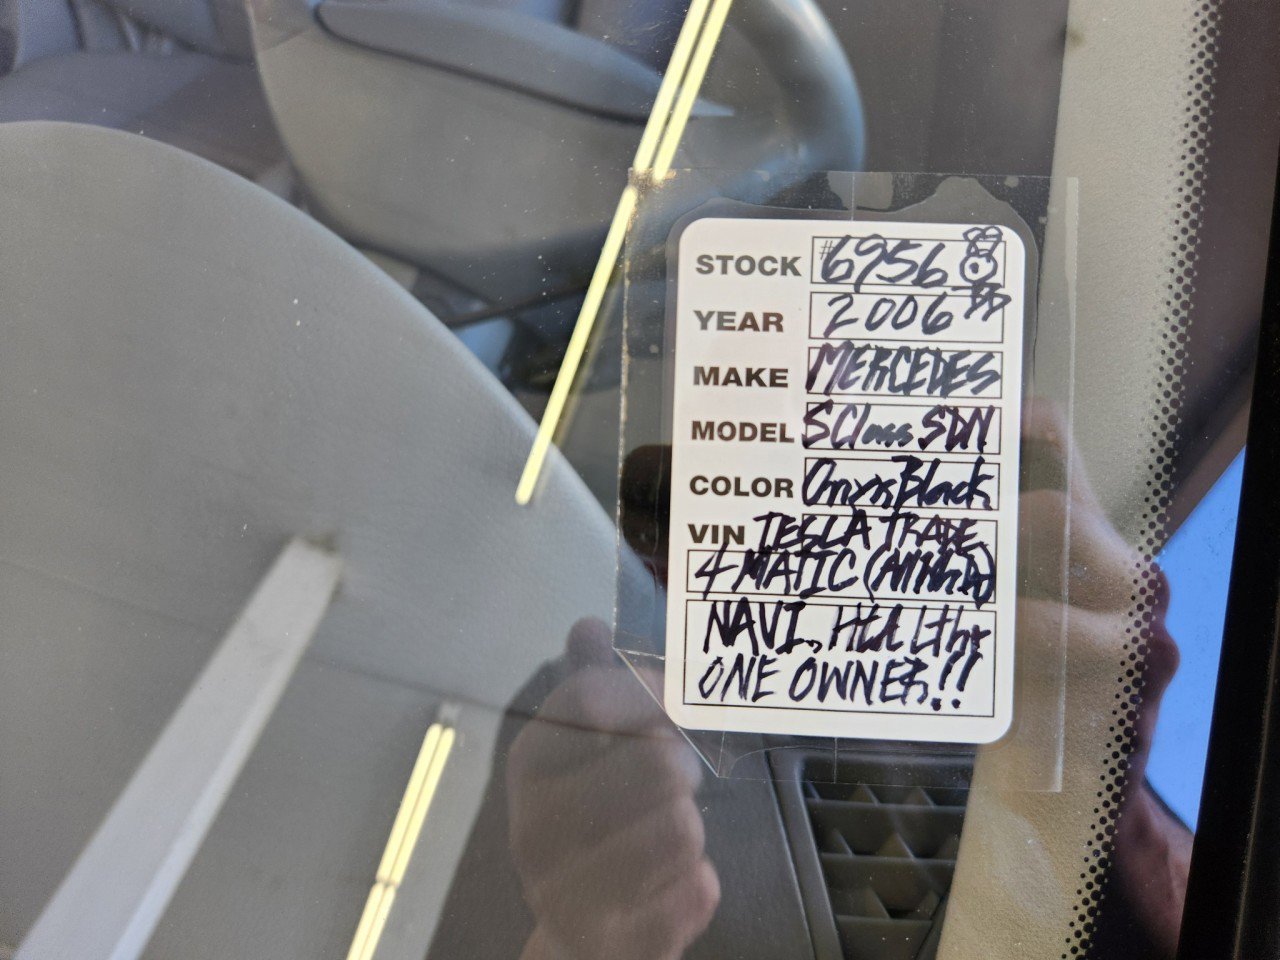 STOCK #6956
YEAR 2006
MAKE MERCEDES
MODEL SClass SDN
COLOR Onyx Black
VIN TESLA TRADE
4 MATIC
NAVI, HEALthy
ONE OWNER!!